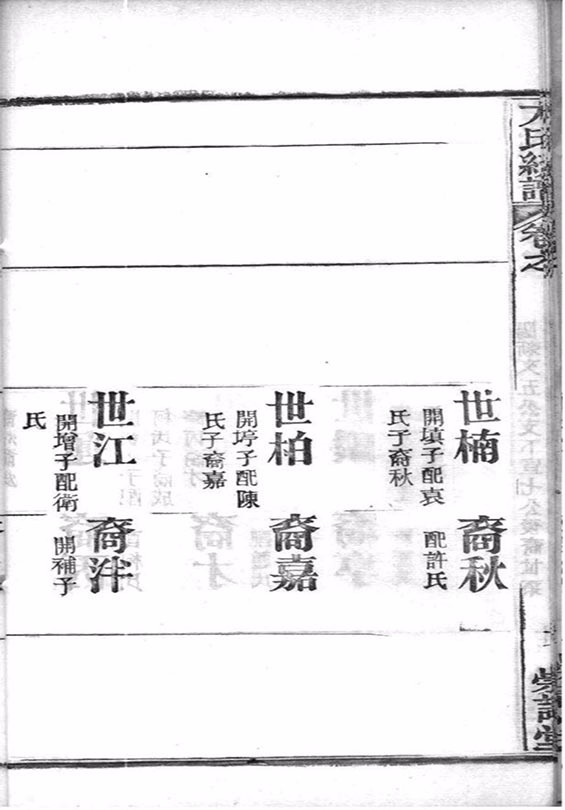 氏統譜 卷之
世楠
開填子配袁
氏子裔秋
裔秋
配許氏
世柏
開㙘子配陳
氏子裔嘉
裔嘉
世江
開增子配衛
氏
裔泮
開補子